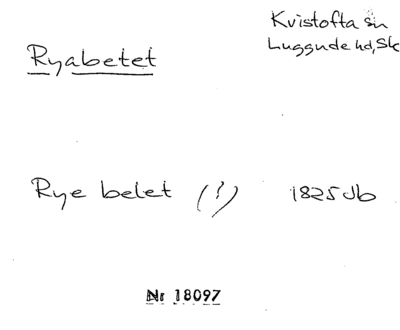 Ryabetet
Kvistofta sn
Luggude hd, Sk
Rye belet (?) 1825 Jb
Nr 18097